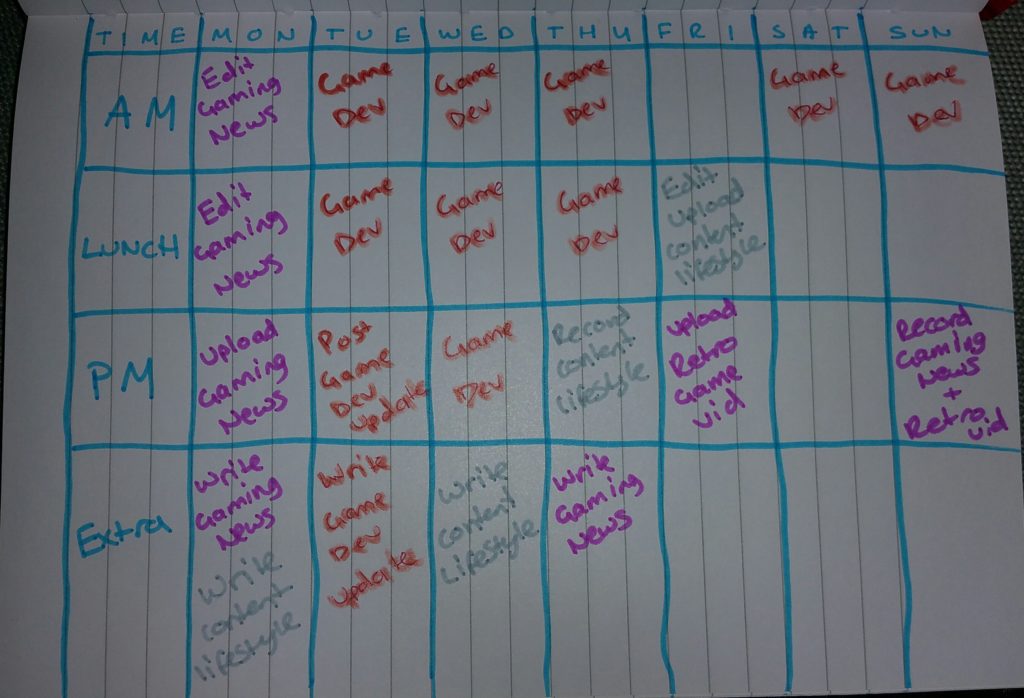 TIME MON TUE WED THU FRI SAT SUN
AM
Edit
Gaming
News
Game
Dev
Game
Dev
Game
Dev
Game
Dev
Game
Dev
LUNCH
Edit
Gaming
News
Game
Dev
Game
Dev
Game
Dev
Edit
Upload
content
lifestyle
PM
Upload
Gaming
News
Post
Game
Dev
update
Game
Dev
Record
content
lifestyle
upload
Retro
Game
vid
Record
Gaming
News
+
Retro
vid
Extra
Write
Gaming
News
Write
content
lifestyle
Write
Game
Dev
update
Write
content
Lifestyle
Write
Gaming
News